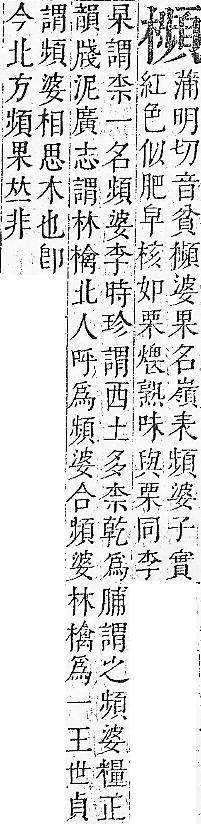 櫇
蒲明切音貧櫇婆果名嶺表頻婆子實
紅色似肥皁核如栗煨熟味與栗同李
杲謂柰一名頻婆李時珍謂西土多柰乾爲脯謂之頻婆糧正
韻牋泥廣志謂林檎北人呼爲頻婆合頻婆林檎爲一王世貞
謂頻婆相思木也卽
今北方頻果𠀤非